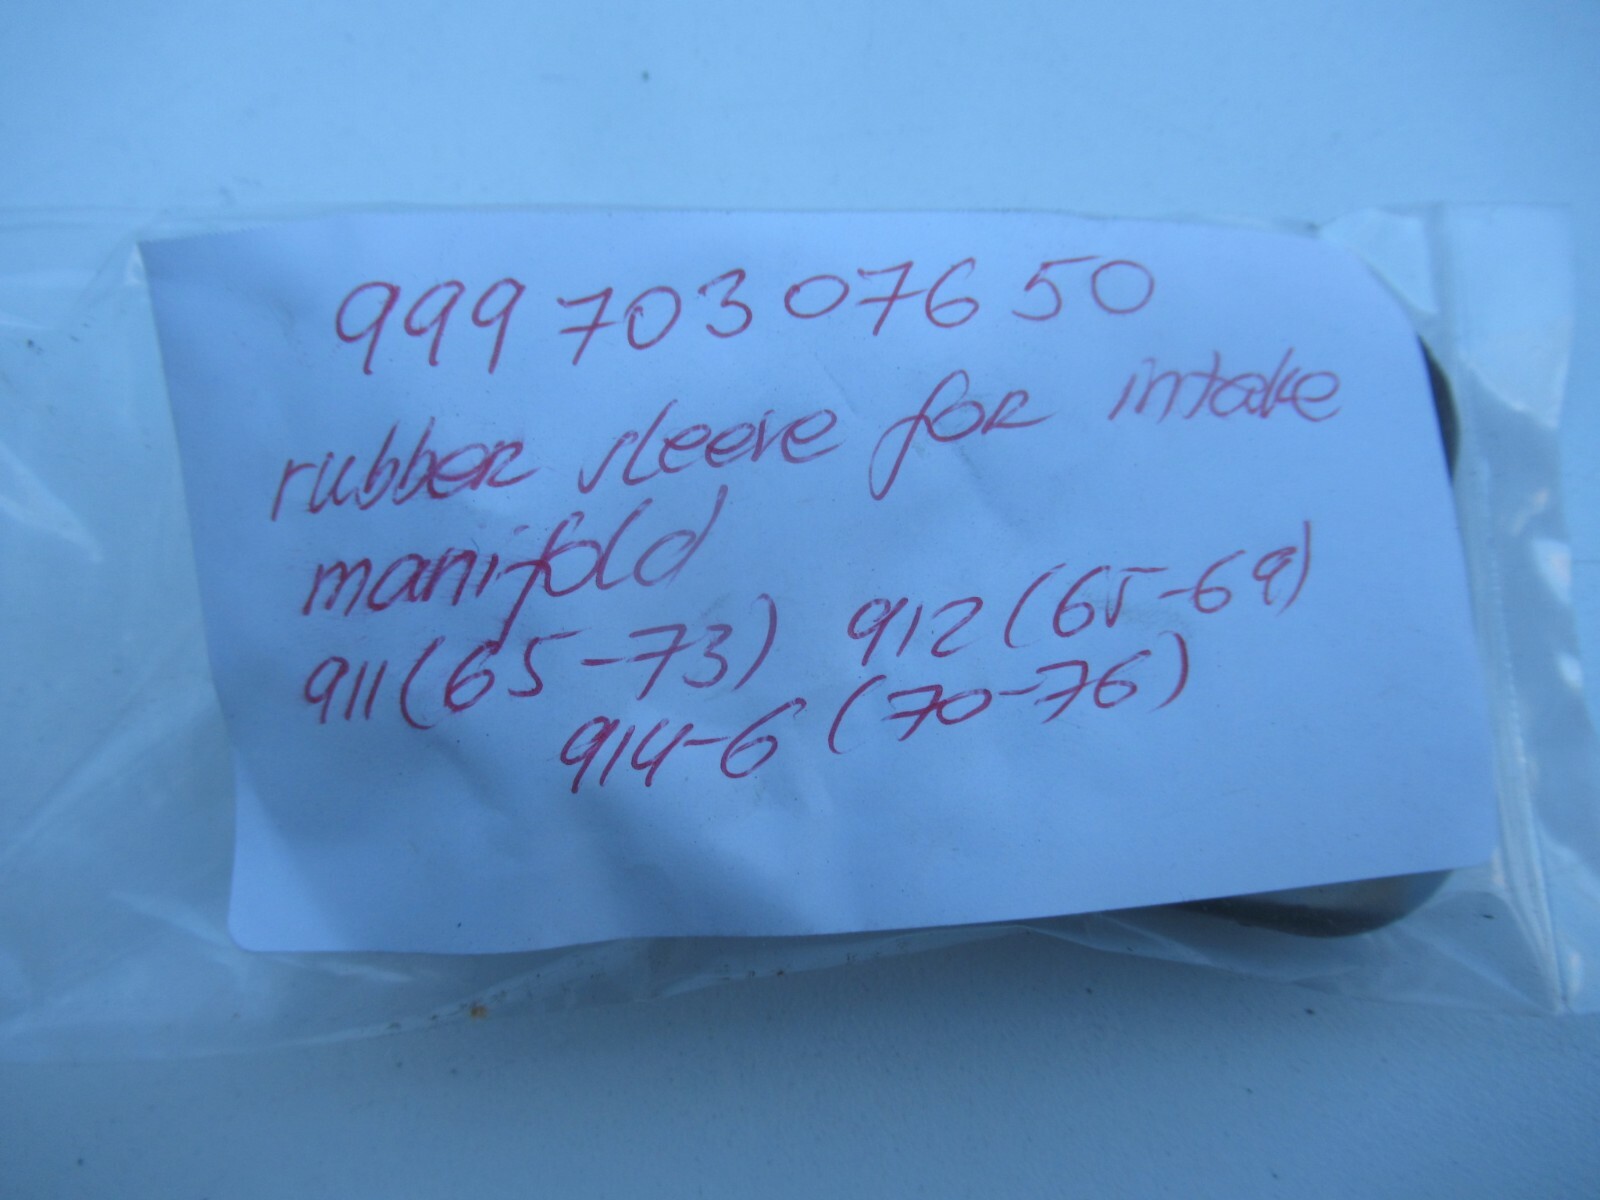 999 703 076 50
rubber sleeve for intake
manifold
911 (65-73) 912 (65-69)
914-6 (70-76)